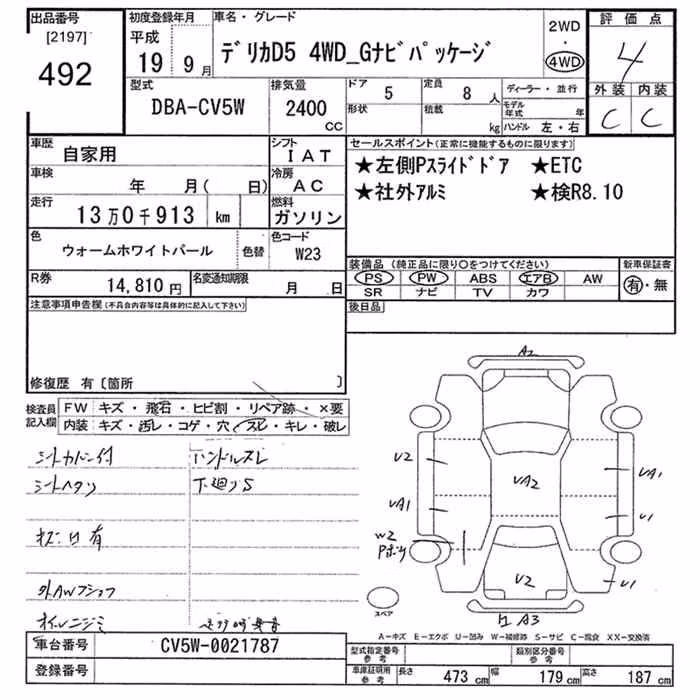 出品番号 初度登録年月 車名・グレード 評価点
[2197] 平成 2WD
492 19年 9月 デリカD5 4WD_Gナビパッケージ ・ 4WD 4
型式 排気量 ドア 5 定員 8人 ディーラー・並行 外装 内装
DBA-CV5W 2400 CC 形状 積載 kg モデル年式 年 C C
ハンドル 左・右
車歴 自家用 シフト IAT セールスポイント(正常に機能するものに限ります)
★左側Pスライドドア ★ETC
車検 年 月( 日) 冷房 AC ★社外アルミ ★検R8.10
走行 13万0千913 km 燃料 ガソリン
色 ウォームホワイトパール 色替 色コード W23
装備品(純正品に限り〇をつけてください) 新車保証書
R券 14,810円 名変通知期限 月 日 PS PW ABS エアB AW 有・無
SR ナビ TV カワ
注意事項申告欄(不具合内容等は具体的に記入して下さい) 後日品
修復歴 有〔箇所 〕
検査員記入欄 FW キズ・飛石・ヒビ割・リペア跡・×要
内装 キズ・汚レ・コゲ・穴・スレ・キレ・破レ
シートカバー付 ハンドルスレ
シートヘタリ 下廻りS
有
A2
V2
VA1
VA2
VA1
U1
W2
V2
U1
A3
スペア
A-キズ E-エクボ U-凹み W-補修跡 S-サビ C-腐食 XX-交換済
車台番号 CV5W-0021787 型式指定番号 参考 類別区分番号 参考
登録番号 車庫証明用 参考 長さ 473cm 幅 179cm 高さ 187cm